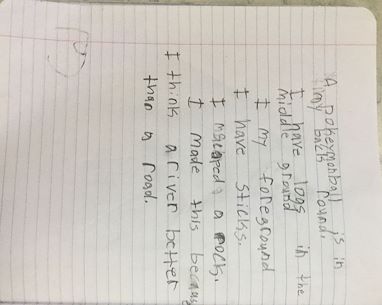 A pokeymonball is in
my back round.
I have logs in the
middle ground
I my foreground
I have sticks.
I a rock.
I made this becaus
I think a river better
than a road.